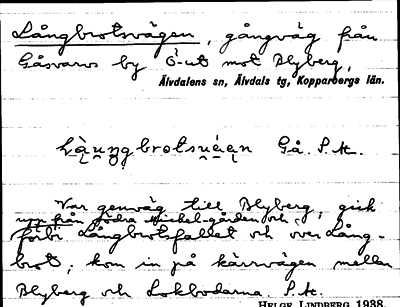 Långbrotsvägen, gångväg från
Gåsvarvs by Ö-ut mot Blyberg,
Älvdalens sn, Älvdals tg, Kopparbergs län.
Gå. S.M.
Var genväg till Blyberg, gick
upp från södra Mickel-gården och
förbi Långbrotsfallet och över Lång-
brot; kom in på kärrvägen mellan
Blyberg och Lokbodarna. S.M.
HELGE LINDBERG 1938.